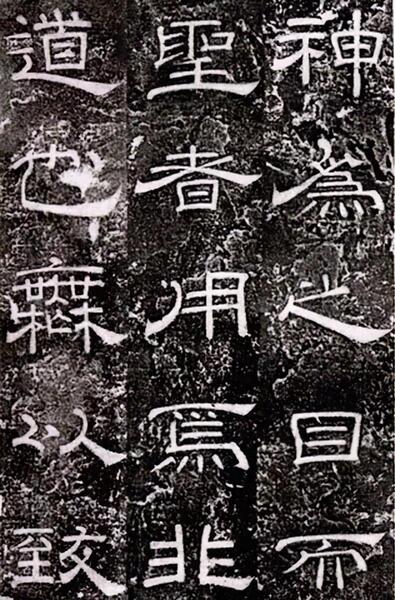 神為之目而
聖者用焉非
道也無以致